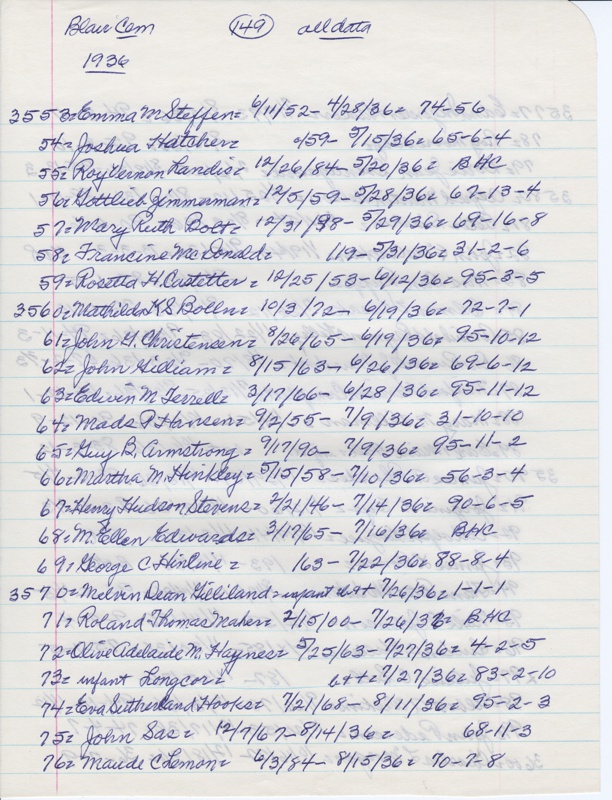 Blair Cem 149 all data
1936
3553= Emma M Steffen= 6/11/52- 4/28/36= 74-56
54= Joshua Hatcher= /59- 5/15/36= 65-6-4
55= Roy Vernon Landis= 12/26/84- 5/20/36= BHC
56= Gottlieb Zimmerman= 12/5/59- 5/28/36= 67-13-4
57= Mary Ruth Bolt= 12/31/98- 5/29/36= 69-16-8
58= Francine McDonald= /19- 5/31/36= 31-2-6
59= Rosetta H. Castetter= 12/25/53- 6/12/36= 95-3-5
3560= Mathilda K S Bolln= 10/3/72- 6/19/36= 72-7-1
61= John G. Christensen= 8/26/65- 6/19/36= 95-10-12
62= John Gilliam= 8/15/63- 6/26/36= 69-6-12
63= Edwin M Ferrell= 3/17/66- 6/28/36= 95-11-12
64= Mads P Hansen= 9/2/55- 7/9/36= 31-10-10
65= Guy B. Armstrong= 9/17/90- 7/9/36= 95-11-2
66= Martha M. Hinkley= 5/15/58- 7/10/36= 56-3-4
67= Henry Hudson Stevens= 2/21/46- 7/14/36= 90-6-5
68= M. Ellen Edwards= 3/17/65- 7/16/36= BHC
69= George C Hinline= /63- 7/22/36= 88-8-4
3570= Melvin Dean Gilliland= infant 7/26/36= 1-1-1
71= Roland Thomas Maher= 2/15/00- 7/26/36= BHC
72= Olive Adelaide M. Haynes= 5/25/63- 7/27/36= 4-2-5
73= infant Longcor= b++= 7/27/36= 83-2-10
74= Eva Sutherland Hooks= 7/21/68- 8/11/36= 95-2-3
75= John Sas= 12/7/67- 8/14/36= 68-11-3
76= Maude C Lemon= 6/3/84- 8/15/36= 70-7-8